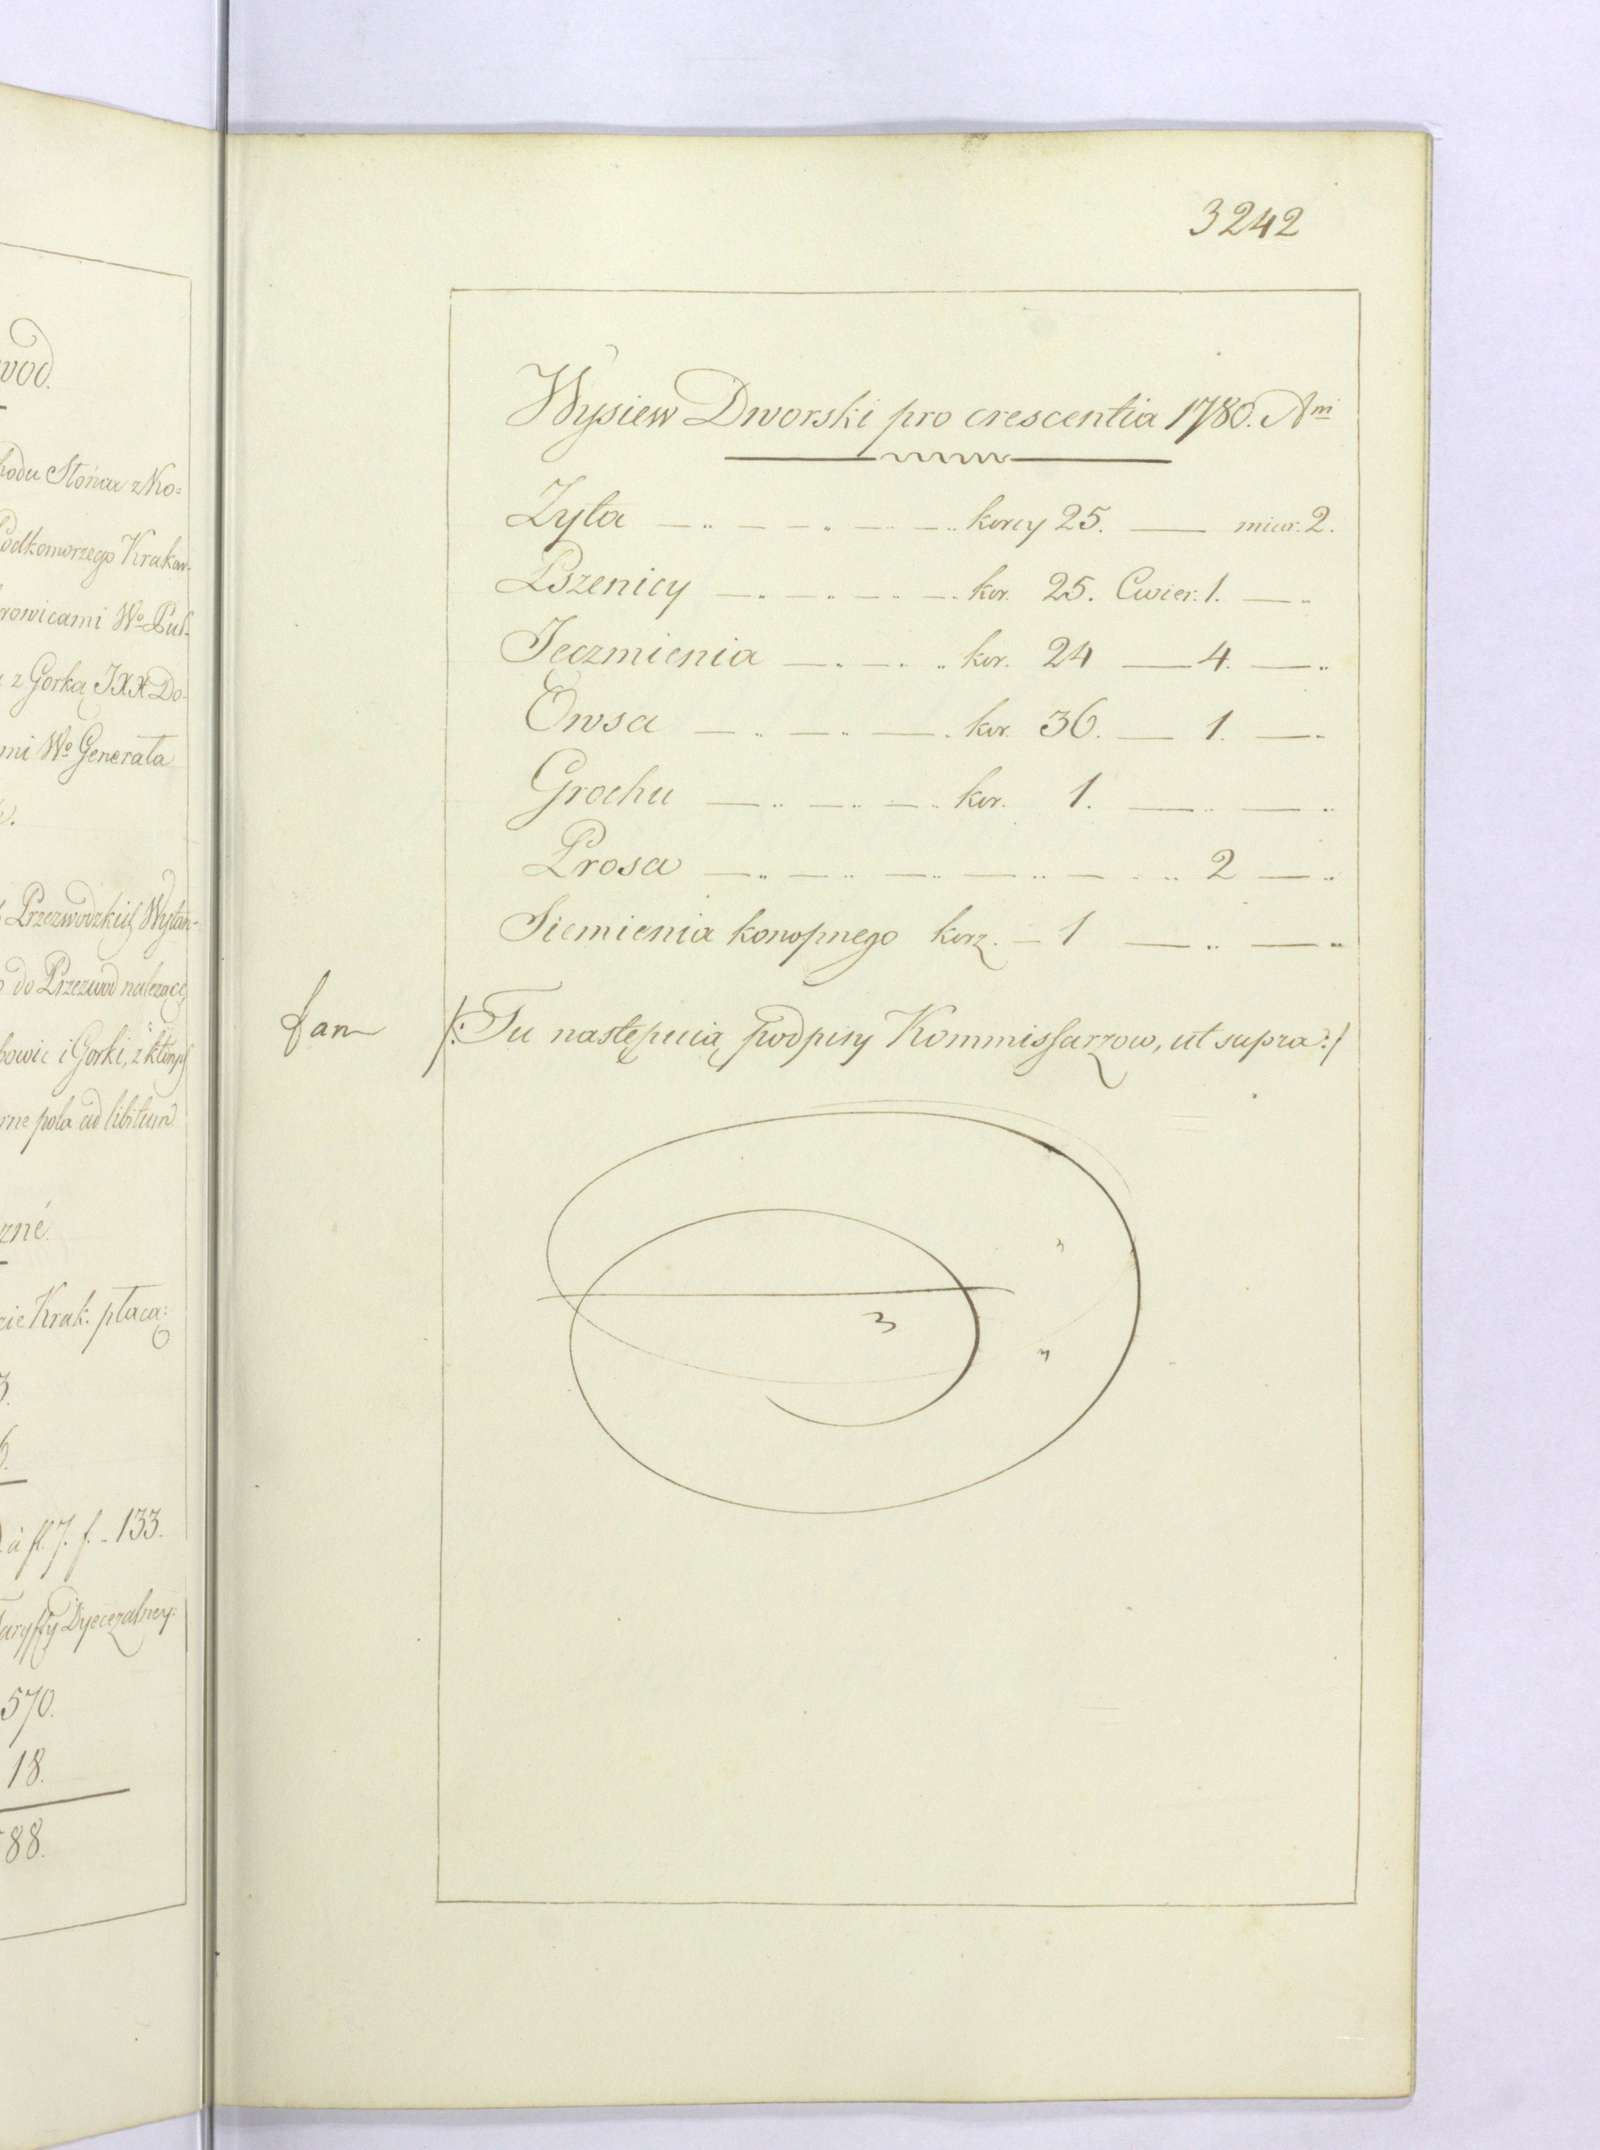 wod.
hodu Słońca z Ko=
Podkomorzego Krakow-
rowicami Wo Pul-
z Gorką JXX Do-
mi Wo Generała
Przezwodzkich
do Przezwod należące
bowic i Gorki, z których
rne pola ad libitum
rzné.
cie Krak: płacą:
3.
6.
à fl. 7. f. - 133.
Taryffy Dyecezalney:
570.
18.
88.
3242
Wysiew Dworski pro crescentia 1780. Ani
Zyta — .. — — .. — — .. korcy 25. — miar: 2.
Pszenicy — .. — .. — .. — .. kor. 25. Cwier: 1. — ..
Jeczmienia — .. — .. — .. kor. 24 — 4. — ..
Owsa — .. — .. — .. kor. 36. — 1. — ..
Grochu — .. — .. — .. kor. 1. — .. — ..
Prosa — .. — .. — .. — .. — .. 2 — ..
Siemienia konopnego korz. — 1 — .. — ..
/: Tu następuią podpisy Kommissarzow, ut supra :/